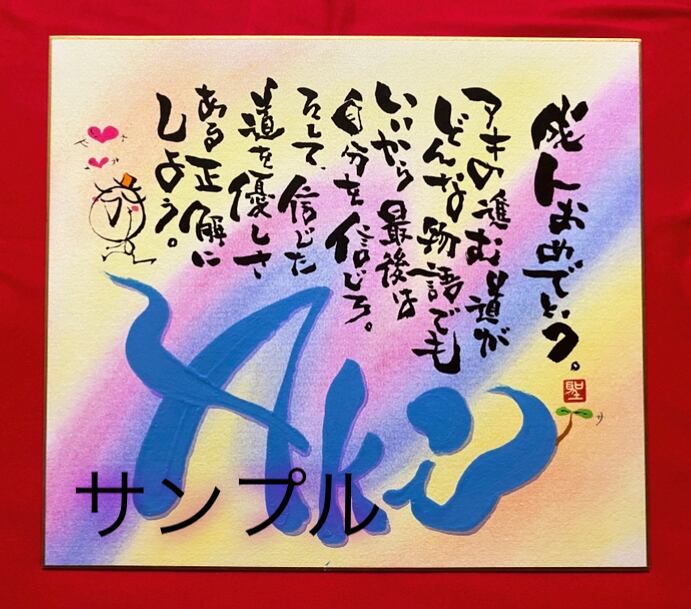 成人おめでとう。
アキの進む道が
どんな物語でも
いいから最後は
自分を信じろ。
そして、信じた
道を優しさ
ある正解に
しよう。
聖
Aki
サンプル